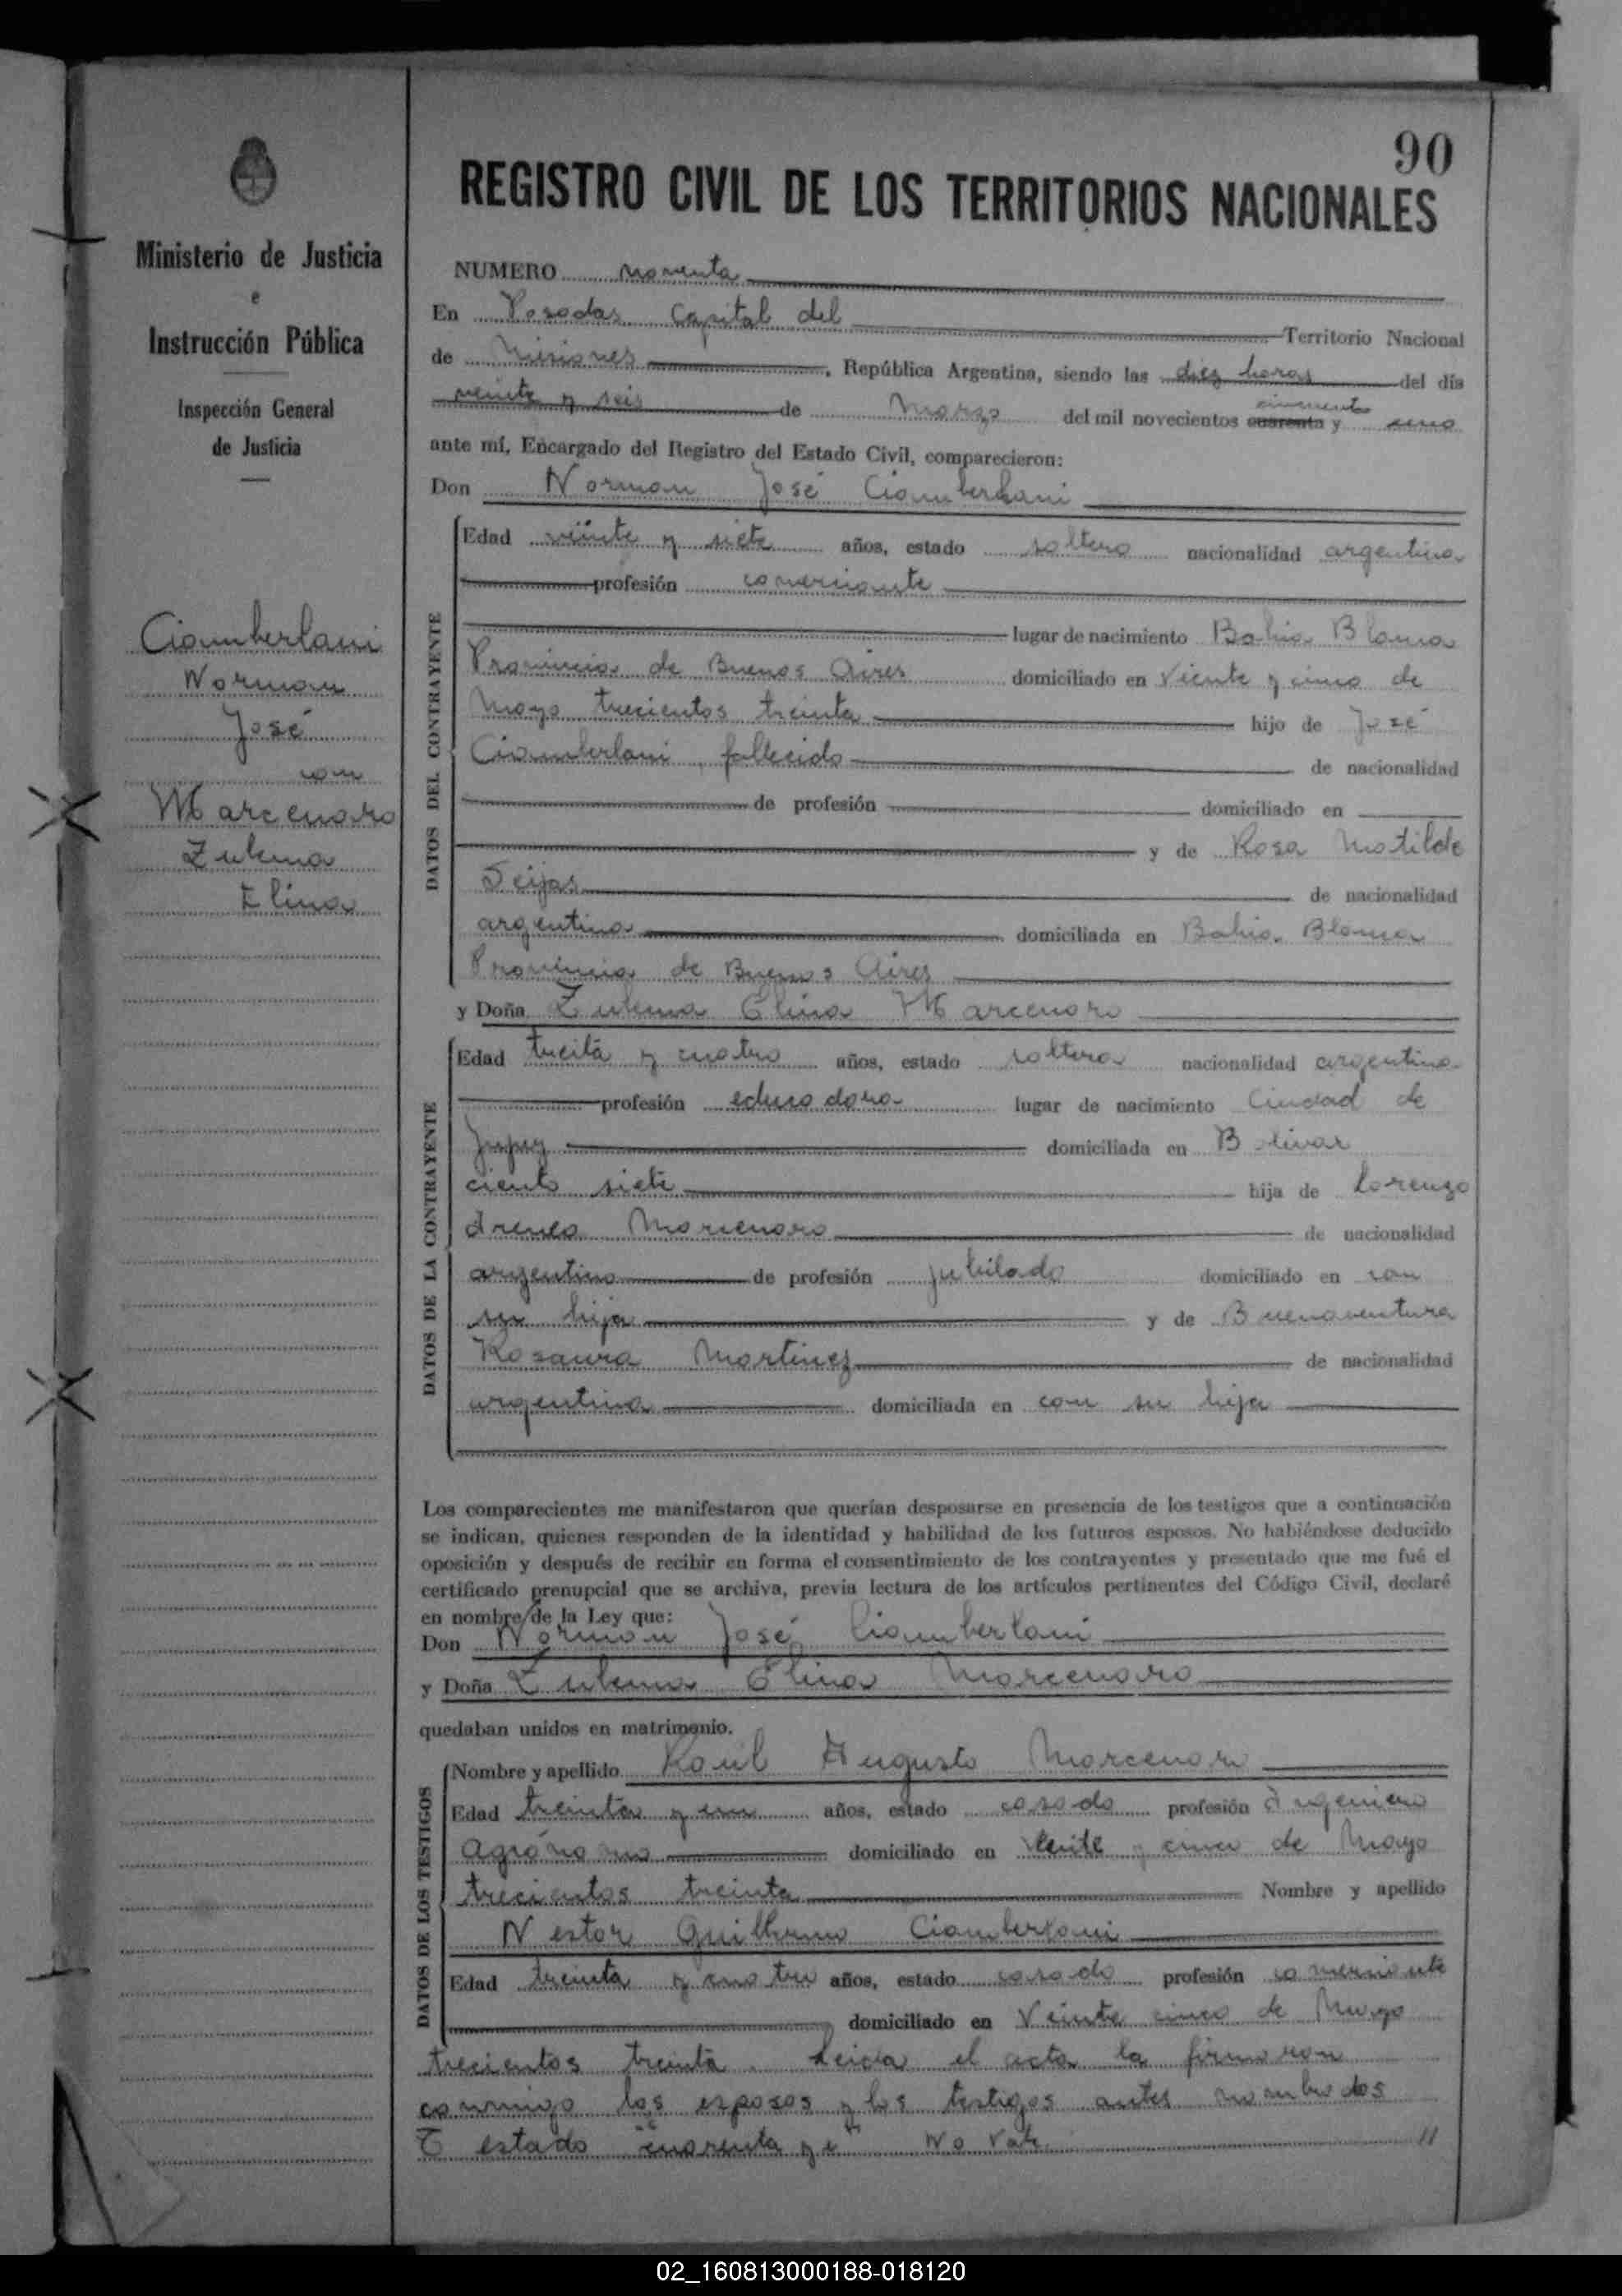 90
REGISTRO CIVIL DE LOS TERRITORIOS NACIONALES
Ministerio de Justicia
e
Instrucción Pública
Inspección General
de Justicia
Ciamberlani
Norman
José
con
Marcenaro
Zulema
Elina
NUMERO noventa
En Posadas Capital del Territorio Nacional
de Misiones, República Argentina, siendo las diez horas del día
veinte y seis de Marzo del mil novecientos cuarenta y cincuenta uno
ante mí, Encargado del Registro del Estado Civil, comparecieron:
Don Norman José Ciamberlani
DATOS DEL CONTRAYENTE
Edad veinte y siete años, estado soltero nacionalidad argentina
profesión comerciante
lugar de nacimiento Bahia Blanca
Provincia de Buenos Aires domiciliado en Viente y cinco de
Mayo trecientos treinta hijo de José
Ciamberlani, fallecido de nacionalidad
de profesión domiciliado en
y de Rosa Matilde
Seijas de nacionalidad
argentina domiciliada en Bahia Blanca
Provincia de Buenos Aires
y Doña Zulema Elina Marcenaro
DATOS DE LA CONTRAYENTE
Edad treita y cuatro años, estado soltera nacionalidad argentina
profesión educadora lugar de nacimiento Ciudad de
Jujuy domiciliada en Bolivar
ciento siete hija de Lorenzo
Ireneo Marcenaro de nacionalidad
argentino de profesión jubilado domiciliado en con
su hija y de Buenaventura
Rosaura Martinez de nacionalidad
argentina domiciliada en con su hija
Los comparecientes me manifestaron que querían desposarse en presencia de los testigos que a continuación
se indican, quienes responden de la identidad y habilidad de los futuros esposos. No habiéndose deducido
oposición y después de recibir en forma el consentimiento de los contrayentes y presentado que me fué el
certificado prenupcial que se archiva, previa lectura de los artículos pertinentes del Código Civil, declaré
en nombre de la Ley que:
Don Norman José Ciamberlani
y Doña Zulema Elina Marcenaro
quedaban unidos en matrimonio.
DATOS DE LOS TESTIGOS
Nombre y apellido Raúl Augusto Marcenaro
Edad treinta y un años, estado casado profesión Ingeniero
Agrónomo domiciliado en Veinte y cinco de Mayo
trecientos treinta Nombre y apellido
Nestor Guillermo Ciamberlani
Edad treinta y cuatro años, estado casado profesión comerciante
domiciliado en Veinte cinco de Mayo
trecientos treinta. Leida el acta la firmaron
conmigo los esposos y los testigos antes nombrados
T estado "cuarenta y" No vale //
02_160813000188-018120